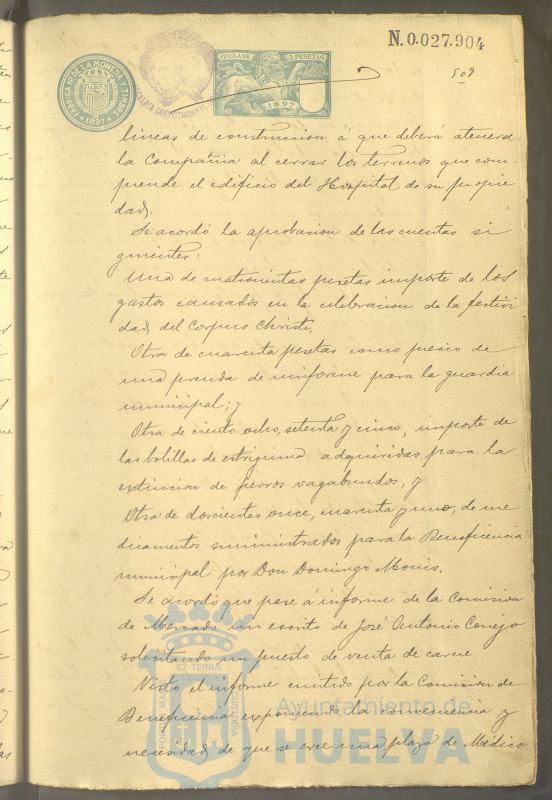 N.0.027.904
509
FABRICA N. DE LA MONEDA Y TIMBRE
1897
11ª CLASE 2 PESETAS
1897
lineas de construccion á que deberá atenerse
la Compañia al cerrar los terrenos que com-
prende el edificio del Hospital de su propie
dad.
Se acordó la aprobacion de las cuentas si
guientes:
Una de cuatrocientas pesetas importe de los
gastos causados en la celebracion de la festivi
dad del Corpus Christi.
Otra de cuarenta pesetas como precio de
una prenda de uniforme para la guardia
municipal; y
Otra de ciento ocho, setenta y cinco, importe de
las bolillas de estrignina adquiridas para la
extincion de perros vagabundos, y
Otra de doscientas once, cuarenta y uno, de me
dicamentos suministrados para la Beneficencia
municipal por Don Domingo Monis.
Se acordó que pase á informe de la Comision
de Mercado un escrito de José Antonio Conejo
solicitando un puesto de venta de carne
Visto el informe emitido por la Comision de
Beneficencia exponiendo la conveniencia y
necesidad de que se cree una plaza de Médico
PORTUS MARIS ET TERRÆ CUSTODIA
Ayuntamiento de
HUELVA